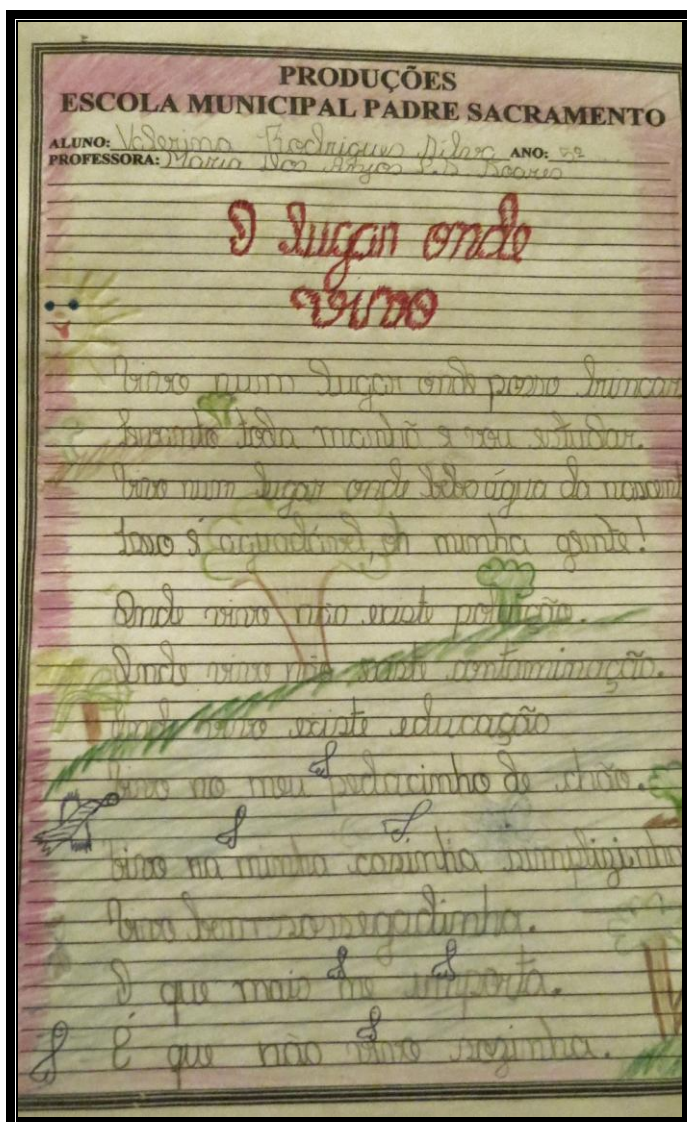 PRODUÇÕES
ESCOLA MUNICIPAL PADRE SACRAMENTO
ALUNO: Valerina Rodrigues Silva ANO: 5º
PROFESSORA: Maria Dos Anjos S. Soares
O lugar onde
vivo
Vivo num lugar onde posso brincar
Levanto toda manhã e vou estudar.
Vivo num lugar onde bebo água da nascent
Isso é agradável, oh minha gente!
Onde vivo não existe poluição.
Onde vivo não existe contaminação.
Onde vivo existe educação
Vivo no meu pedacinho de chão.
Vivo na minha casinha simplizinha
Vivo bem sossegadinha.
O que mais me importa.
É que não vivo sozinha.